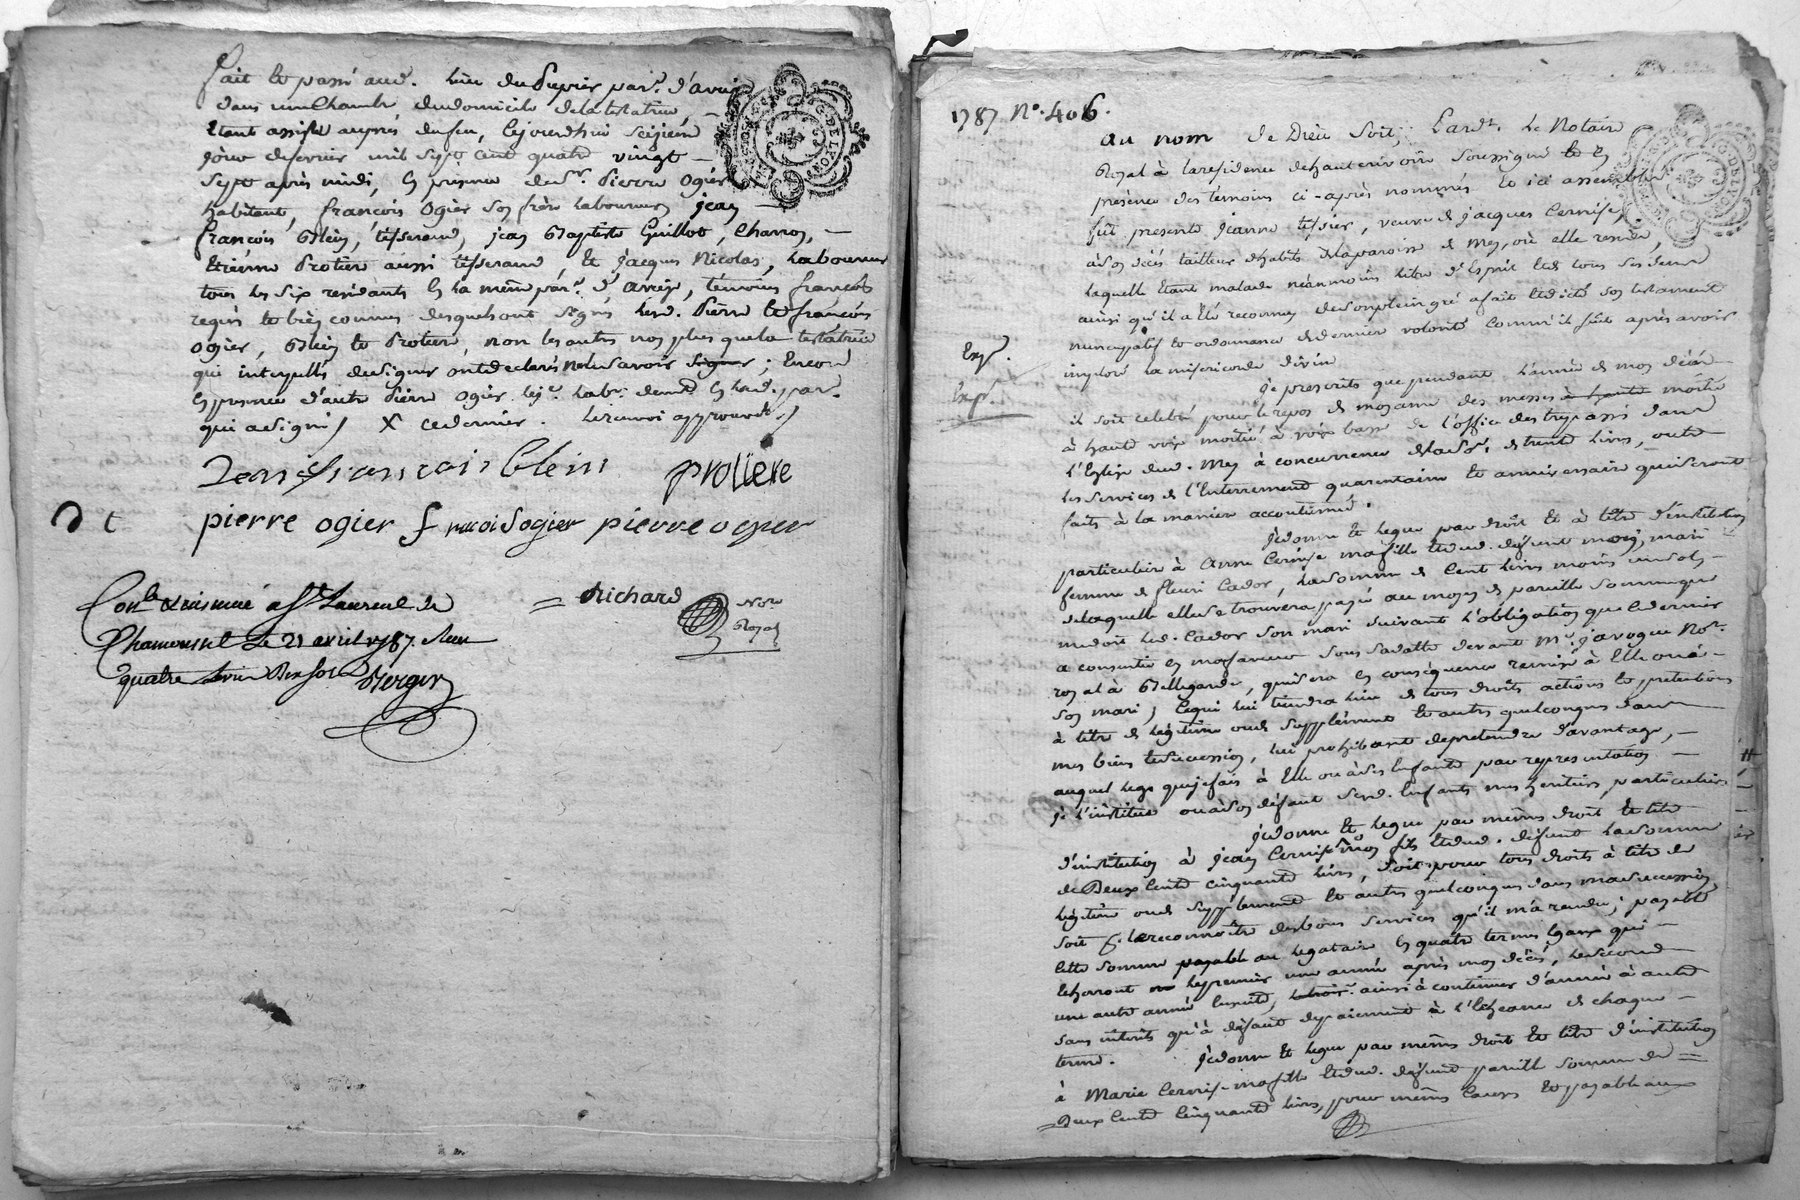 fait et passé aud. lieu du Perrier par.e d'aveize
dans une Chambre du domicile de la testatrice,
étant assise auprès du feu, cejourdhui seizième
jour de fevrier mil sept cent quatre vingt
sept après midi, en presence de sr. Pierre Ogier
habitant, françois Ogier son frère laboureur, jean
françois Blein, tisserand, jean Baptiste Guillot, Charron,
Etienne Protiere aussi tisserand, et jacques Nicolas, laboureur
tous les six residants en la même par.e d'aveize, temoins
requis et bien connus desquels ont signés lesd. Pierre et françois
Ogier, Blein et Protiere, non les autres non plus que la testatrice
qui interpellés de signer ont declarés ne le savoir signer; Encore
en presence d'autre Pierre Ogier
qui a signé / X ce dernier. le renvoi approuvé /
Jean françois blein proliere
pierre ogier francoisogier pierre ogier
Richard
Not.re
Royal
Con.lé & insinué a St. Laurent de
Chamousset le 21 avril 1787. Reçu
quatre livres dix sols
Berger
G. DE LYON
1787 N°. 406.
au nom de Dieu soit; Pardt. le Notaire
Royal à la residence de hauterivoire soussigné et en
presence des temoins ci-après nommés et ici assemblés
fut presente jeanne tissier, veuve de jacques Cernise,
à son décès tailleur d'habits de la paroisse de Mey, où elle reside,
laquelle étant malade néanmoins libre d'Esprit et de tous ses sens
ainsi qu'il a été reconnu de son plein gré a fait et dicté son testament
nuncupatif et ordonnance de derniere volonté comm'il suit après avoir
imploré la misericorde divine
Exp.
Exp.
je prescrits que pendant l'année de mon décès
il soit celebré pour le repos de mon ame des messes à haute moitié
à haute voix moitié à voix basse de l'office des trepassés dans
l'Eglise dud. Mey à concurrence de la so.e de trente livres, outre
les services de l'Enterrement quarantaine et anniversaire qui seront
faits à la maniere accoutumée.
je donne et legue par droit et à titre d'institution
particuliere à Anne Cernise ma fille et dud. defunt mon mari
femme de fleuri Cador, la somme de Cent livres moins un sol,
de laquelle elle se trouvera payée au moyen de pareille somme que
me doit led. Cador son mari suivant l'obligation que ce dernier
a consentie en ma faveur sous sa datte devant Me. javogue No.re
royal à Bellegarde, qui sera en conséquence remise à Elle ou à
son mari; Ce qui lui tiendra lieu de tous droits actions et pretentions
à titre de légitime ou de supplément et autres quelconques dans
mes biens et succession, lui prohibant de pretendre d'avantage,
auquel legs que je fais à Elle ou à ses Enfants par representation
je l'institue ou à son défaut sesd. Enfants mes heritiers particuliers
je donne et legue par mêmes droit et titre
d'institution à jean Cernise mon fils et dud. defunt la somme
de Deux Cents cinquante livres, soit pour tous droits à titre de
légitime ou de supplément et autres quelconques dans ma succession
soit p.r le reconnoitre des bons services qu'il m'a rendu; payable
cette somme payable au legataire en quatre termes Egaux qui
echerront le premier une année après mon décès, le second
une autre année ensuite, ainsi à continuer d'année à autre
sans intérêts qu'à défaut de paiement à l'Echeance de chaque
terme. je donne et legue par mêmes droit et titre d'institution
à Marie Cernise ma fille et dud. defunt pareille somme de
Deux Cents Cinquante livres, pour mêmes causes et payable aux